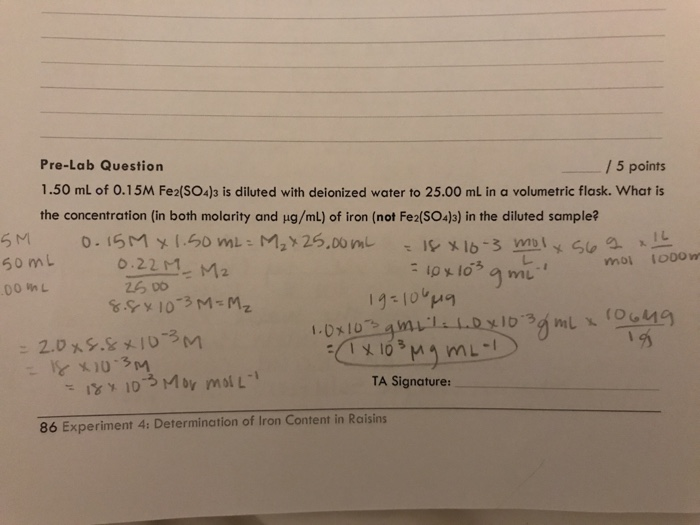 Pre-Lab Question ____ / 5 points
1.50 mL of 0.15M Fe2(SO4)3 is diluted with deionized water to 25.00 mL in a volumetric flask. What is
the concentration (in both molarity and µg/mL) of iron (not Fe2(SO4)3) in the diluted sample?
5M
50 mL
.00 mL
0.15M x 1.50 mL = M2 x 25.00 mL
0.22 M / 25.00 = M2
8.8 x 10-3 M = M2
= 2.0 x 8.8 x 10-3 M
= 18 x 10-3 M
= 18 x 10-3 M or mol L-1
= 18 x 10-3 mol/L x 56 g/mol x 1L/1000m
= 1.0 x 10-3 g mL-1
1g = 106 µg
1.0x10-3 g mL-1 = 1.0 x 10-3 g mL x 106 µg/1g
= 1 x 103 µg mL-1
TA Signature:
86 Experiment 4: Determination of Iron Content in Raisins